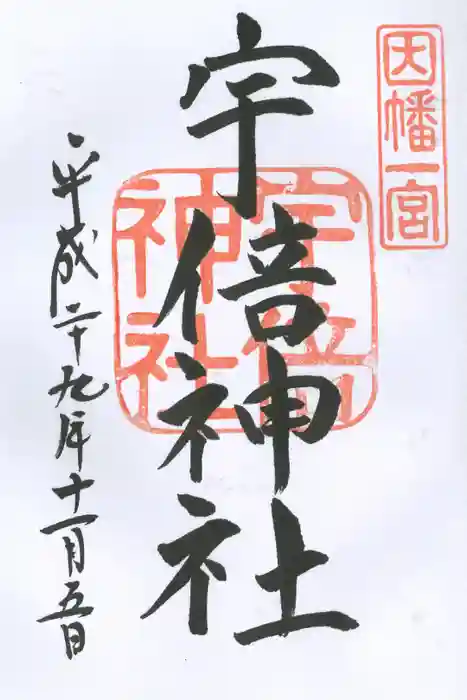 因幡一宮
宇倍神社
宇倍神社
平成二十九年十一月五日